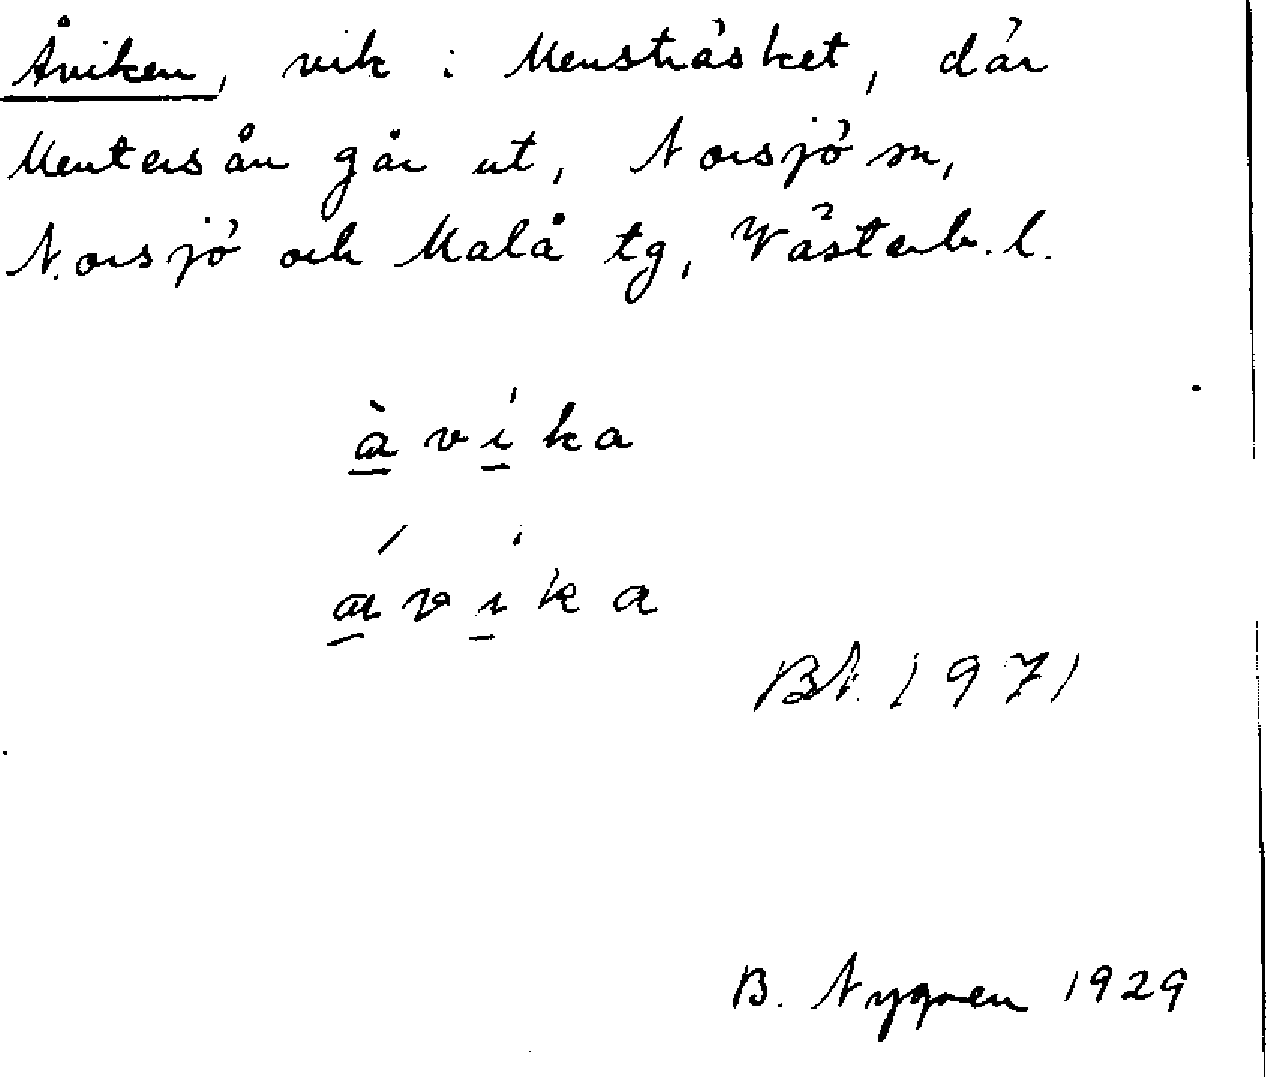 Åviken, vik i Mensträsket, där
Mentersån går ut, Norsjö sn,
Norsjö och Malå tg, Västerb. l.
à̱ vi̱ ka
á̱ vi̱ ka
BN. 1971
B. Nygren 1929